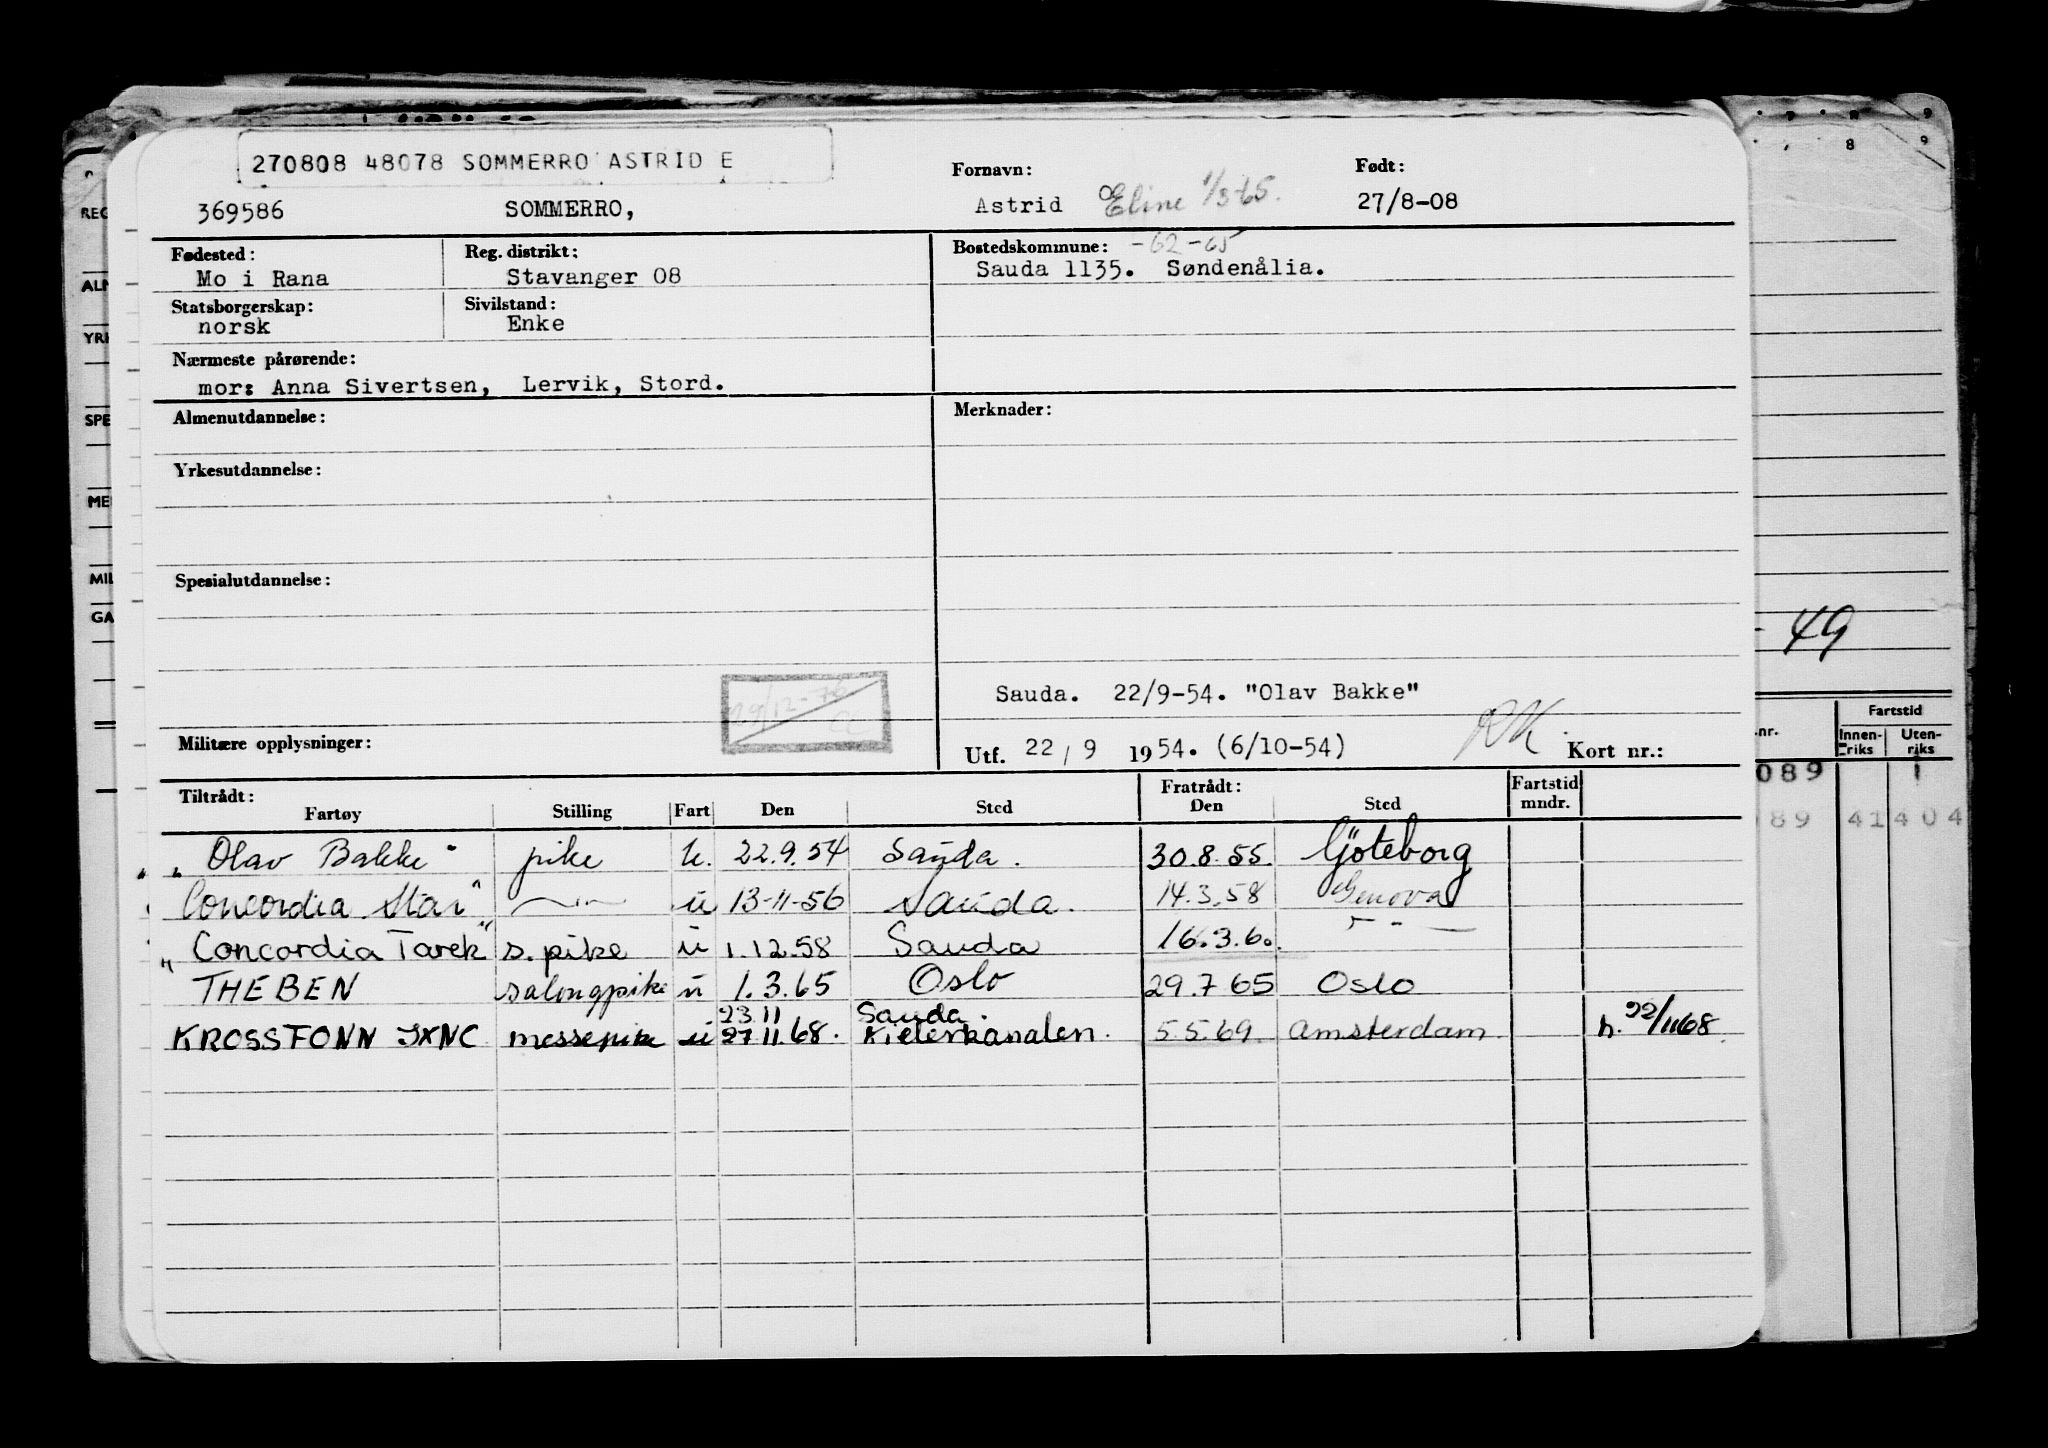 270808 48078 SOMMERRO ASTRID E
369586 SOMMERRO,
Fornavn: Født:
Astrid Eline 1/3-65. 27/8-08
Fødested: Reg. distrikt: Bostedskommune: -62-65
Mo i Rana Stavanger 08 Sauda 1135. Søndenålia.
Statsborgerskap: Sivilstand:
norsk Enke
Nærmeste pårørende:
mor: Anna Sivertsen, Lervik, Stord.
Almenutdannelse: Merknader:
Yrkesutdannelse:
Spesialutdannelse:
19/12-76
Sauda. 22/9-54. "Olav Bakke"
Militære opplysninger: Utf. 22/9 1954. (6/10-54) Kort nr.:
Tiltrådt: Fratrådt: Fartstid
Fartøy Stilling Fart Den Sted Den Sted mndr.
"Olav Bakke" pike u. 22.9.54 Sauda. 30.8.55. Göteborg
Concordia Star" —"— u 13-11-56 Sauda. 14.3.58 Genova
"Concordia Tarek" s. pike u 1.12.58 Sauda 16.3.60. —"—
THEBEN salongpike u 1.3.65 Oslo 29.7 65 Oslo
23.11 Sauda.
KROSSFONN JXNC messepike u 27.11.68. Kielerkanalen. 5.5.69. Amsterdam. h. 22/1168.
REG
ALM
YRK
SPE
MIL
GA
8 9
- 49
nr. Fartstid
Innen-riks Uten-riks
089 1
89 41 404